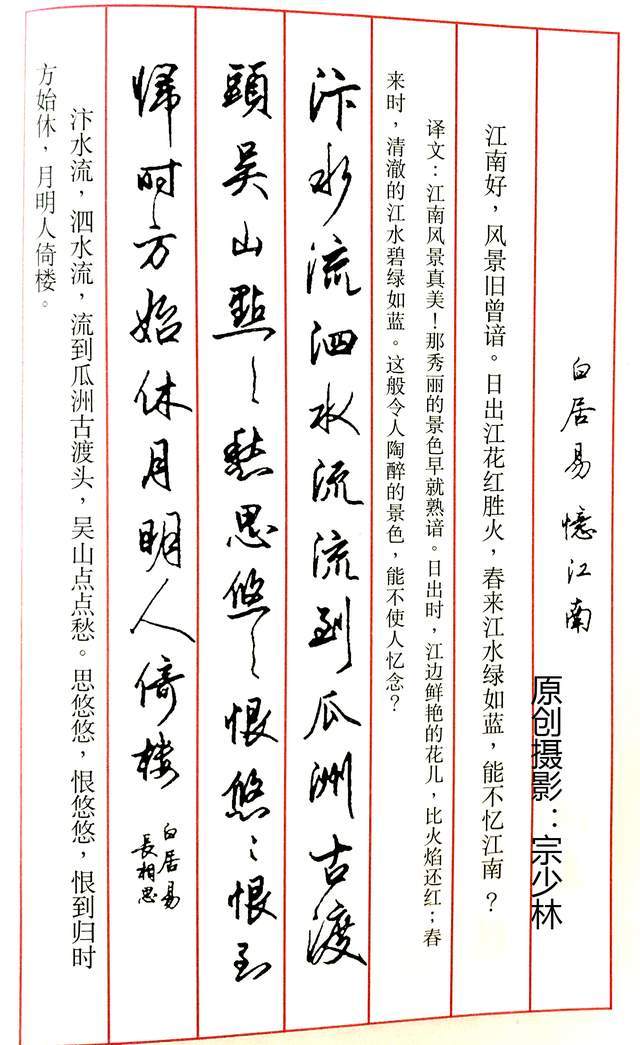 白居易 憶江南
原创摄影：宗少林
江南好，风景旧曾谙。日出江花红胜火，春来江水绿如蓝，能不忆江南？
译文：江南风景真美！那秀丽的景色早就熟谙。日出时，江边鲜艳的花儿，比火焰还红；春
来时，清澈的江水碧绿如蓝。这般令人陶醉的景色，能不使人忆念？
汴水流泗水流流到瓜洲古渡
頭吴山點〻愁思悠〻恨悠〻恨到
歸时方始休月明人倚楼
白居易
長相思
汴水流，泗水流，流到瓜洲古渡头，吴山点点愁。思悠悠，恨悠悠，恨到归时
方始休，月明人倚楼。